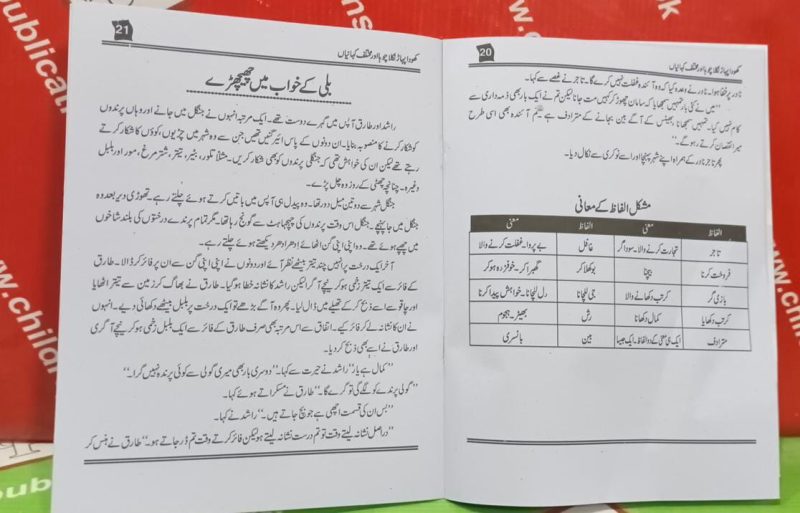 20
کھودا پہاڑ نکلا چوہا اور مختلف کہانیاں
نادر پر خفا ہوا۔ نادر نے وعدہ کیا کہ وہ آئندہ غفلت نہیں کرے گا۔ تاجر نے غصے سے کہا۔
’’میں نے کئی بار تمہیں سمجھایا کہ سامان چھوڑ کر کہیں مت جانا لیکن تم نے ایک بار بھی ذمہ داری سے
کام نہیں کیا۔ تمہیں سمجھانا، بھینس کے آگے بین بجانے کے مترادف ہے آئندہ بھی اسی طرح
میرا نقصان کرتے رہو گے۔‘‘
پھر تاجر نادر کے ہمراہ اپنے شہر پہنچا اور اسے نوکری سے نکال دیا۔
مشکل الفاظ کے معانی
الفاظ معنی الفاظ معنی
تاجر تجارت کرنے والا۔ سوداگر غافل بے پروا۔ غفلت کرنے والا
فروخت کرنا بیچنا بوکھلا کر گھبرا کر۔ خوفزدہ ہو کر
بازی گر کرتب دکھانے والا جی للچانا دل للچانا۔ خواہش پیدا کرنا
کرتب دکھایا کمال دکھانا رش بھیڑ۔ ہجوم
مترادف ایک ہی معنی کے دو الفاظ۔ ایک جیسا بین بانسری
21
کھودا پہاڑ نکلا چوہا اور مختلف کہانیاں
بلی کے خواب میں چھیچھڑے
راشد اور طارق آپس میں گہرے دوست تھے۔ ایک مرتبہ انہوں نے جنگل میں جانے اور وہاں پرندوں
کو شکار کرنے کا منصوبہ بنایا۔ ان دونوں کے پاس ائیر گنیں تھیں جن سے وہ شہر میں چڑیوں، کوؤں کا شکار کرتے
رہتے تھے لیکن ان کی خواہش تھی کہ جنگلی پرندوں کو بھی شکار کریں۔ مثلاً تلور، بٹیر، تیتر، شتر مرغ، مور اور بلبل
وغیرہ۔ چنانچہ چھٹی کے روز وہ چل پڑے۔
جنگل شہر سے دو تین میل دور تھا۔ وہ پیدل ہی آپس میں باتیں کرتے ہوئے چلتے رہے۔ تھوڑی دیر بعد وہ
جنگل میں جا پہنچے۔ جنگل اس وقت پرندوں کی چہچہاہٹ سے گونج رہا تھا۔ مگر تمام پرندے درختوں کی بلند شاخوں
میں چھپے ہوئے تھے۔ وہ اپنی اپنی گن اٹھائے ادھر ادھر دیکھتے ہوئے چلتے رہے۔
آخر ایک درخت پر انہیں چند تیتر بیٹھے نظر آئے اور دونوں نے اپنی اپنی گن سے ان پر فائر کر ڈالا۔ طارق
کے فائر سے ایک تیتر زخمی ہو کر نیچے آ گرا لیکن راشد کا نشانہ خطا ہو گیا۔ طارق نے بھاگ کر زمین سے تیتر اٹھایا
اور چاقو سے اسے ذبح کر کے تھیلے میں ڈال لیا۔ پھر وہ آگے بڑھے تو ایک درخت پر بلبل بیٹھے دکھائی دیے۔ انہوں
نے ان کا نشانہ لے کر فائر کیے۔ اتفاق سے اس مرتبہ بھی صرف طارق کے فائر سے ایک بلبل زخمی ہو کر نیچے آ گری
اور طارق نے اسے بھی ذبح کر دیا۔
’’کمال ہے یار‘‘ راشد نے حیرت سے کہا۔ ’’دوسری بار بھی میری گولی سے کوئی پرندہ نہیں گرا۔‘‘
’’گولی پرندے کو لگے گی تو گرے گا۔‘‘ طارق نے مسکراتے ہوئے کہا۔
’’بس ان کی قسمت اچھی ہے جو بچ جاتے ہیں۔‘‘ راشد نے کہا۔
’’دراصل نشانہ لیتے وقت تو تم درست نشانہ لیتے ہو لیکن فائر کرتے وقت تم ڈر جاتے ہو۔‘‘ طارق نے ہنس کر
publicat
www.child